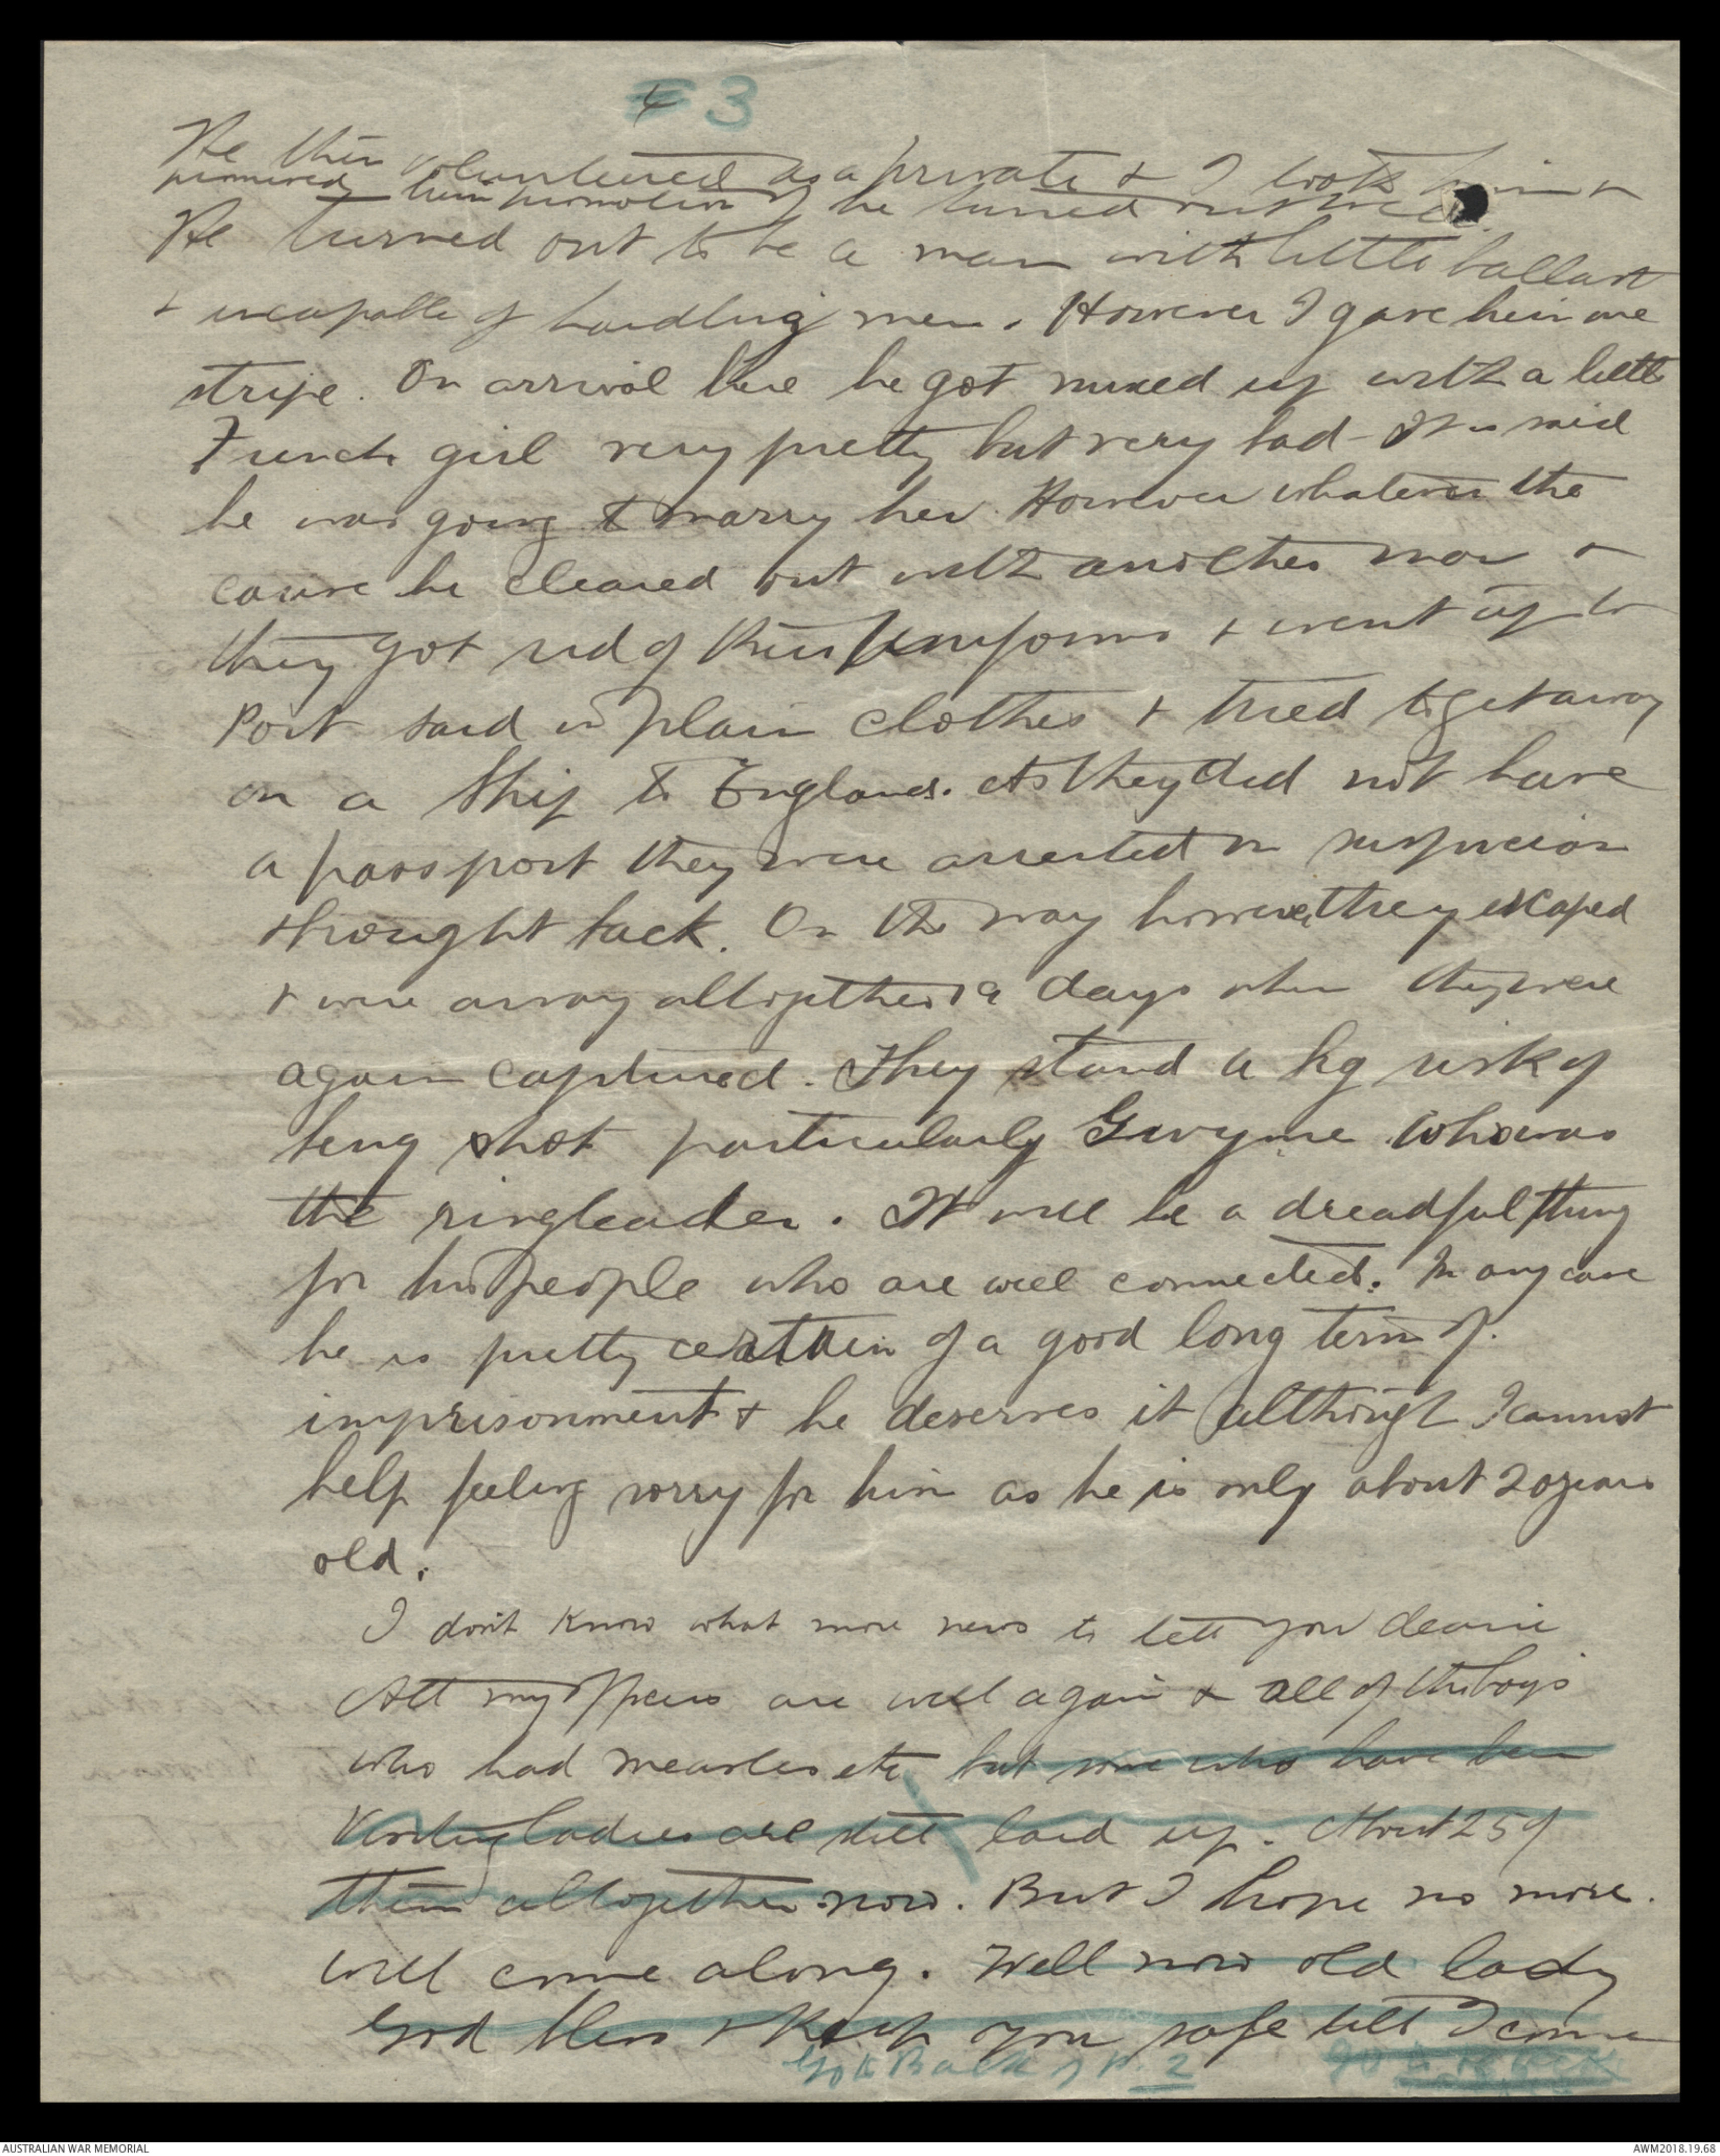 4 3
He then volunteered as a private & I took him &
promised him promotion if he turned out well
He turned out to be a man with little ballast
& incapable of handling men. However I gave him one
stripe. On arrival here he got mixed up with a little
French girl very pretty but very bad - It is said
he was going to marry her. However whatever the
cause he cleared out with another man &
they got rid of their uniforms & went up to
Port Said in plain clothes & tried to get away
on a ship to England. As they did not have
a passport they were arrested on suspicion
& brought back. On the way however they escaped
& were away altogether 19 days when they were
again captured. They stand a big risk of
being shot particularly Gwynne who was
the ringleader. It will be a dreadful thing
for his people who are well connected. In any case
he is pretty certain of a good long term of
imprisonment & he deserves it although I cannot
help feeling sorry for him as he is only about 20 years
old.
I don't know what more news to tell you dearie
All my officers are well again & all of the boys
who had measles etc but some who have been
Visiting ladies are still laid up. About 25 of
them altogether now. But I hope no more
will come along. Well now old lady
God bless & keep you safe till I come
Go to Back of P. 2 go to back
AUSTRALIAN WAR MEMORIAL
AWM2018.19.68